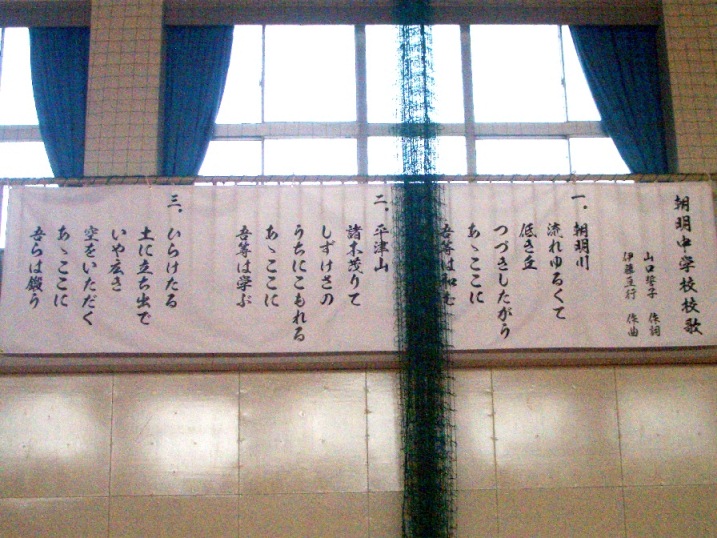 朝明中学校校歌
山口誓子 作詞
伊藤亘行 作曲
一、朝明川
流れゆるくて
低き丘
つづきしたがう
あゝここに
吾等は和む
二、平津山
諸木茂りて
しずけさの
うちにこもれる
あゝここに
吾等は学ぶ
三、ひらけたる
土に立ち出で
いや広き
空をいただく
あゝここに
吾らは鍛う